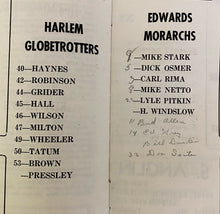 HARLEM
GLOBETROTTERS
40—HAYNES
42—ROBINSON
44—GRIDER
45—HALL
46—WILSON
47—MILTON
49—WHEELER
50—TATUM
53—BROWN
—PRESSLEY
EDWARDS
MORARCHS
9—MIKE STARK
5—DICK OSMER
3—CARL RIMA
8—MIKE NETTO
22—LYLE PITKIN
—H. WINDSLOW
11 Bud
14 Ed
Bill
33 Don